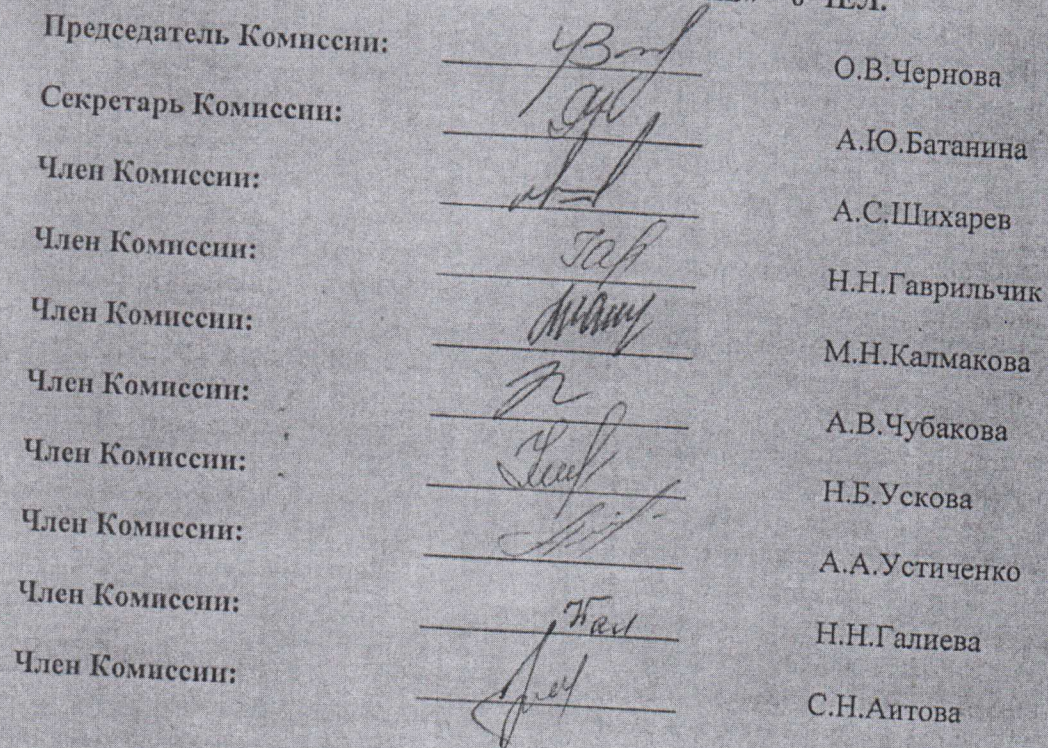 0 ЧЕЛ.
Председатель Комиссии: О.В.Чернова
Секретарь Комиссии: А.Ю.Батанина
Член Комиссии: А.С.Шихарев
Член Комиссии: Н.Н.Гаврильчик
Член Комиссии: М.Н.Калмакова
Член Комиссии: А.В.Чубакова
Член Комиссии: Н.Б.Ускова
Член Комиссии: А.А.Устиченко
Член Комиссии: Н.Н.Галиева
Член Комиссии: С.Н.Аитова